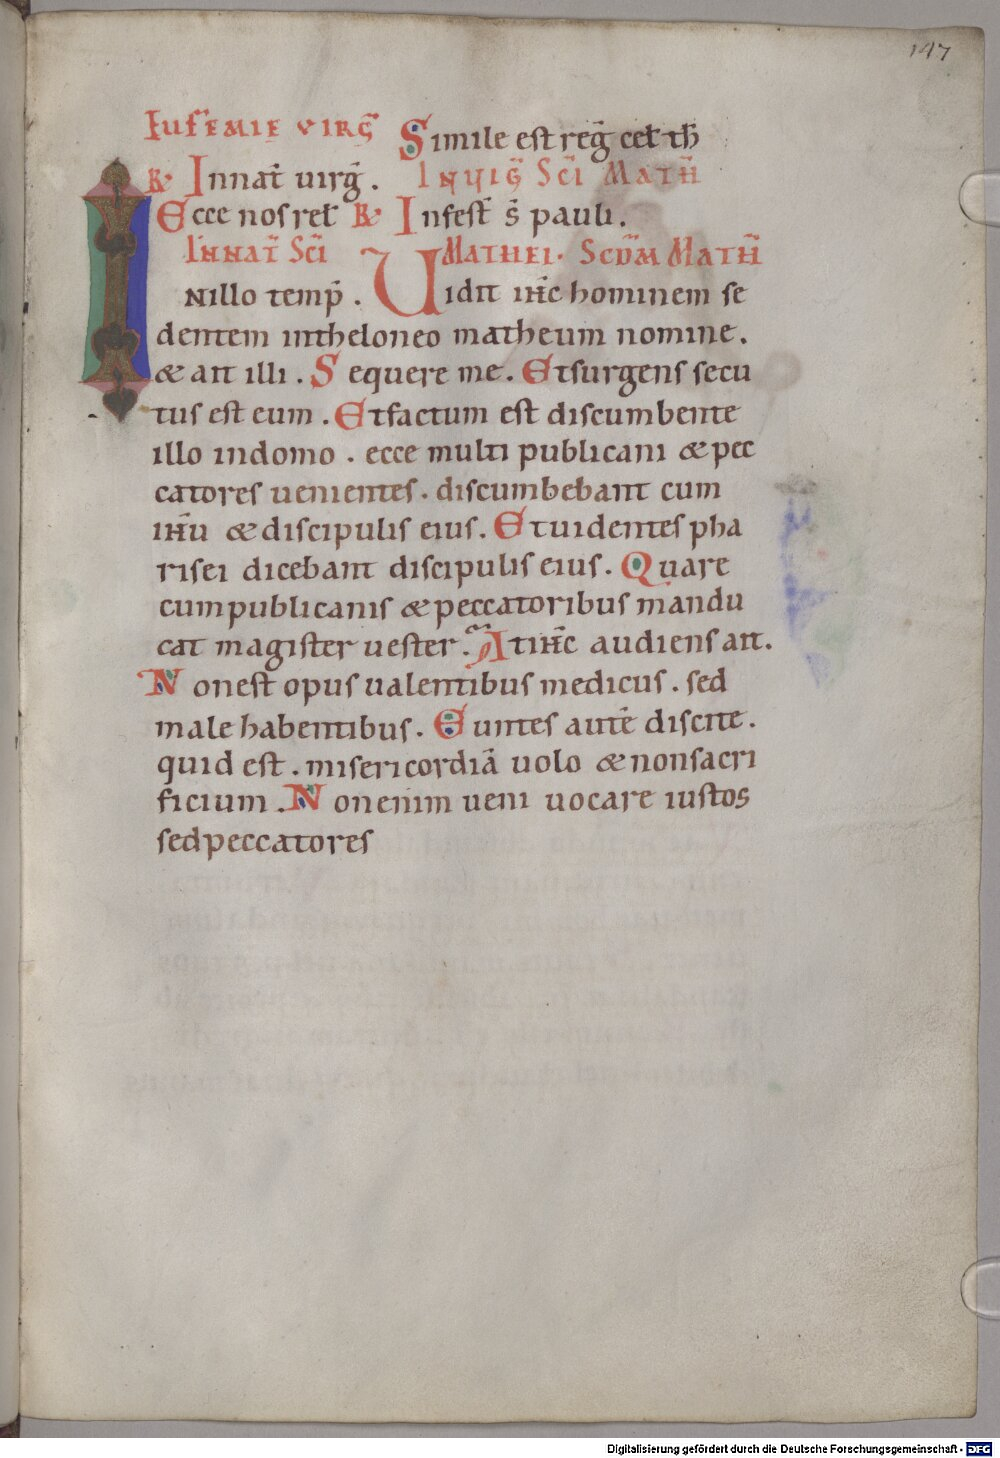 147
Eufemie virḡ Simile est reḡ cel̄ th̄
R Innat̄ uirḡ. In uiḡ Sc̄i Math̄
Ecce nos rel̄ R In fest̄ s̄ pauli.
In nat̄ Sc̄i Mathei. Scd̄m Math̄
In illo temp̄. Uidit ih̄c hominem se
dentem intheloneo matheum nomine.
& ait illi. Sequere me. Et surgens secu
tus est eum. Et factum est discumbente
illo indomo. ecce multi publicani & pec
catores uenientes. discumbebant cum
ih̄u & discipulis eius. Et uidentes pha
risei dicebant discipulis eius. Quare
cum publicanis & peccatoribus mandu
cat magister uester. At ih̄c audiens ait.
Non est opus ualentibus medicus. sed
male habentibus. Euntes autē discite.
quid est. misericordiā uolo & non sacri
ficium. Non enim ueni uocare iustos
sed peccatores
Digitalisierung gefördert durch die Deutsche Forschungsgemeinschaft - DFG